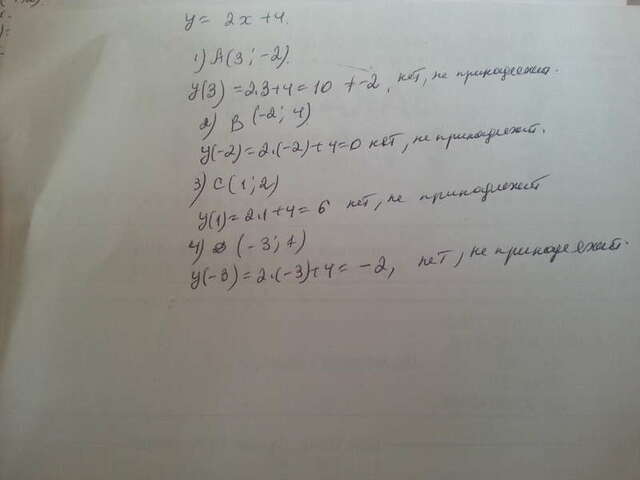 y = 2x + 4.
1) A (3; -2).
y(3) = 2·3+4 = 10 ≠ -2, нет, не принадлежит.
2) B (-2; 4)
y(-2) = 2·(-2)+4 = 0 нет, не принадлежит.
3) C (1; 2)
y(1) = 2·1+4 = 6 нет, не принадлежит
4) (-3; 1)
y(-3) = 2·(-3)+4 = -2, нет, не принадлежит.